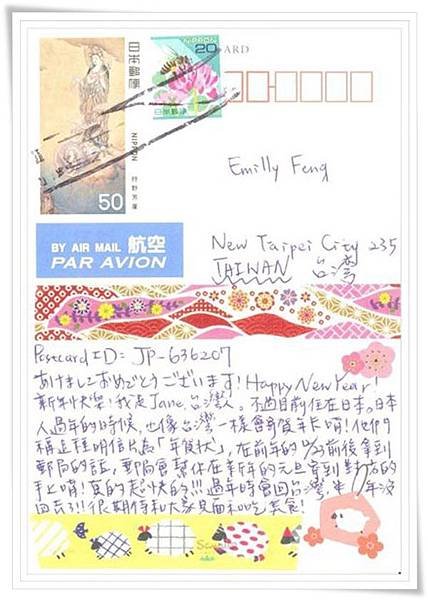 日本郵便
NIPPON
狩野芳崖
50
NIPPON
20
日本郵便
CARD
Emilly Feng
BY AIR MAIL 航空
PAR AVION
New Taipei City 235
TAIWAN 台湾
Postcard ID: JP-636207
あけましておめでとうございます! Happy New Year!
新年快樂!我是Jane,台灣人。不過目前住在日本。日本
人過年的時候,也像台灣一樣會寄賀年卡唷!他們
稱這種明信片為「年賀狀」,在前年的12/25前後拿到
郵局的話,郵局會幫你在新年的元旦寄到對方的
手上唷!真的超快的!!!過年時會回台灣,半年沒
回去了!!很期待和大家見面和吃美食!